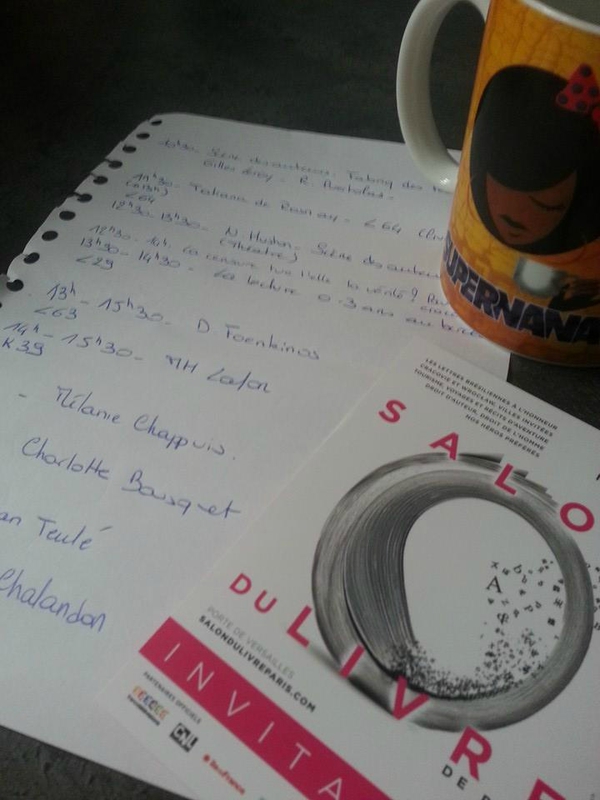 10h30 - Scène des auteurs.
Gilles Leroy - R.
11h30 - Tatiana de Rosnay - L64
L64
12h30 - 13h30 - N. Huston - Scène des auteurs
(théâtre)
12h30 - 14h. La censure
13h30 - 14h30 - La lecture 0-3 ans au
L29
13h - 15h30 - D Foenkinos
L63
14h - 15h30 - MH Lafon
K39
- Mélanie Chappuis.
Charlotte Bousquet
an Teulé
Chalandon
SUPERNANA
LES LETTRES BRÉSILIENNES À L'HONNEUR
CRACOVIE ET WROCLAW, VILLES INVITÉES
TOURISME, VOYAGES ET RÉCITS D'AVENTURE
DROIT D'AUTEUR, DROIT DE L'HOMME
NOS HÉROS PRÉFÉRÉS
SALO
DU LIVRE
DE
PORTE DE VERSAILLES
SALONDULIVREPARIS.COM
INVITA
PARTENAIRES OFFICIELS
CNL
îledeFrance